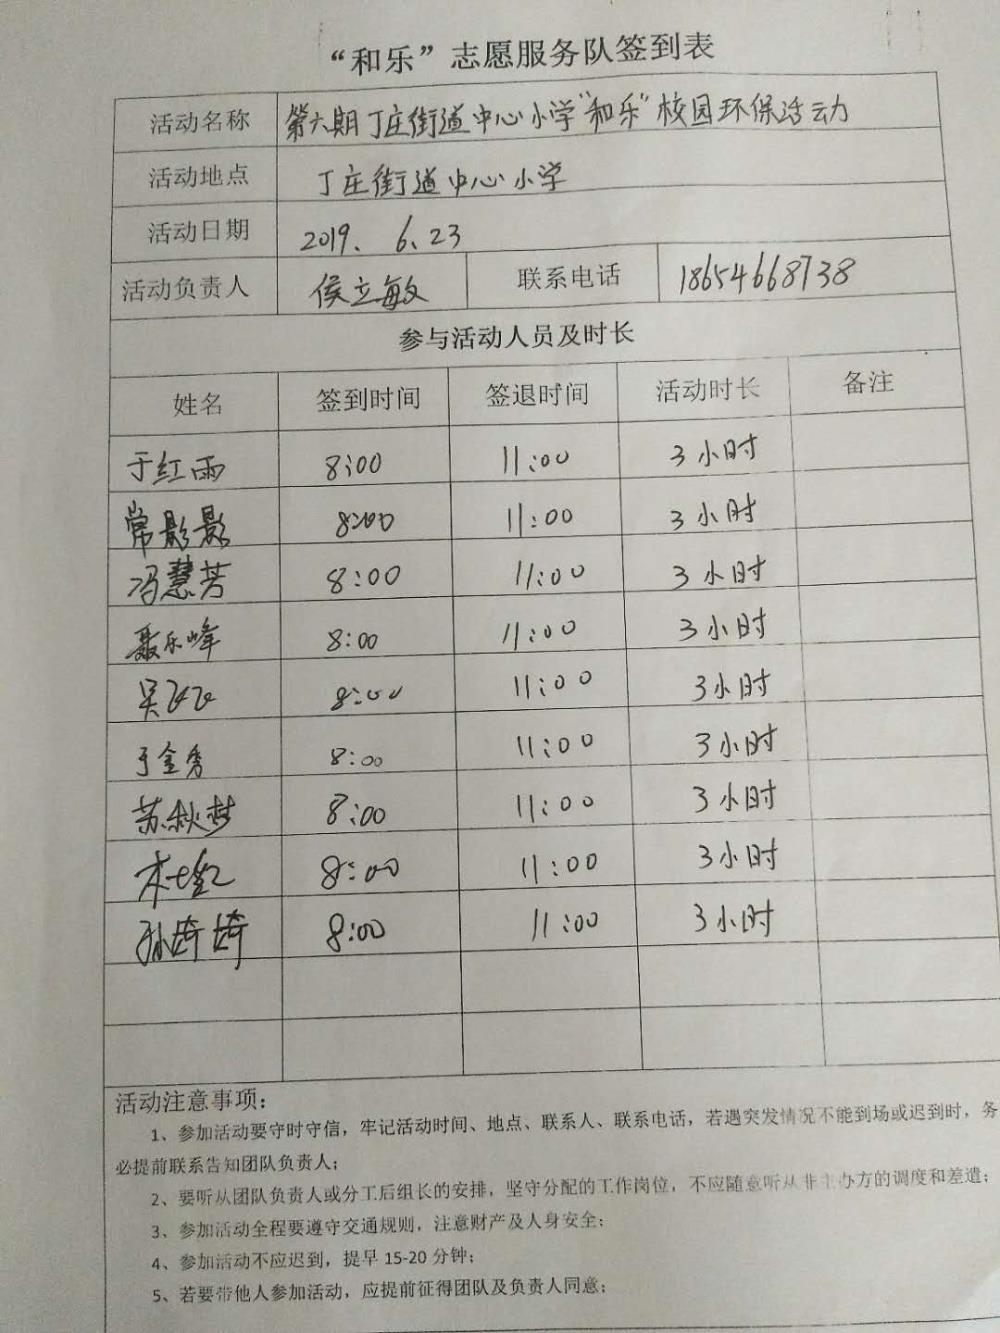 “和乐”志愿服务队签到表
活动名称 第六期丁庄街道中心小学“和乐”校园环保活动
活动地点 丁庄街道中心小学
活动日期 2019、6、23
活动负责人 侯立敏 联系电话 18654668738
参与活动人员及时长
姓名 签到时间 签退时间 活动时长 备注
于红雨 8:00 11:00 3小时
常影影 8:00 11:00 3小时
冯慧芳 8:00 11:00 3小时
聂乐峰 8:00 11:00 3小时
吴飞飞 8:00 11:00 3小时
于金秀 8:00 11:00 3小时
苏秋梦 8:00 11:00 3小时
8:00 11:00 3小时
孙琦琦 8:00 11:00 3小时
活动注意事项：
1、参加活动要守时守信，牢记活动时间、地点、联系人、联系电话，若遇突发情况不能到场或迟到时，务
必提前联系告知团队负责人；
2、要听从团队负责人或分工后组长的安排，坚守分配的工作岗位，不应随意听从非主办方的调度和差遣；
3、参加活动全程要遵守交通规则，注意财产及人身安全；
4、参加活动不应迟到，提早 15-20 分钟；
5、若要带他人参加活动，应提前征得团队及负责人同意；